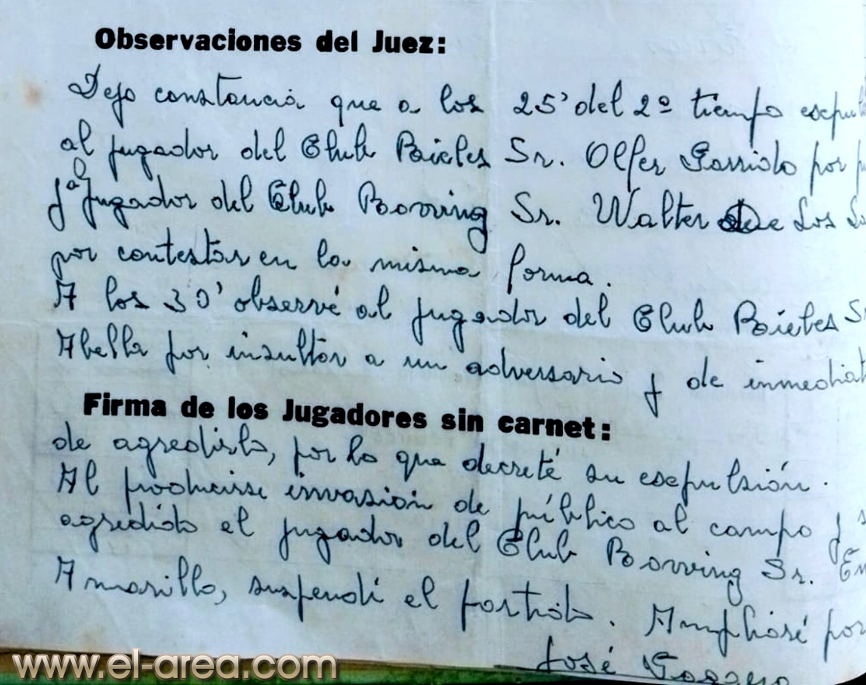 Observaciones del Juez:
Dejo constancia que a los 25' del 2º tiempo
al jugador del Club Sr. Olfer Garrido por
y al jugador del Club Sr. Walter De Los
por contestar en la misma forma.
A los 30' observé al jugador del Club
Abella por insultar a un adversario y de
Firma de los Jugadores sin carnet:
de agredirlo, por lo que decreté su esepulsión.
Al producirse invasión de público al campo y
agredido el jugador del Club Sr.
Amarillo, suspendí el partido. Ampliaré por
José
www.el-area.com